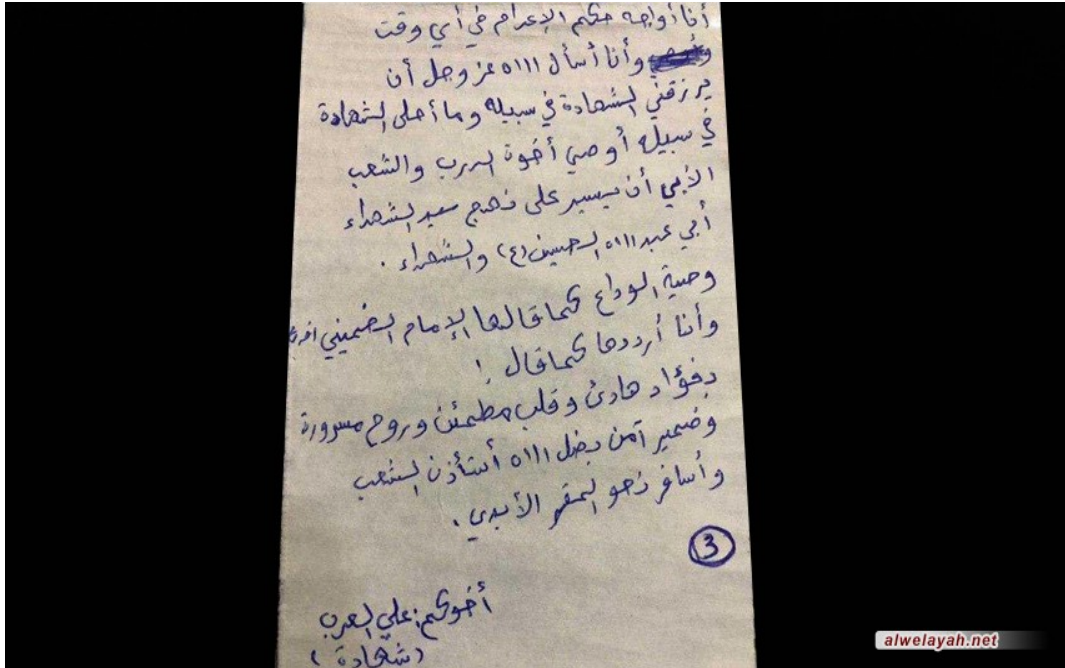 أنا أواجه حكم الإعدام في أي وقت
وأنا أسأل ااا٥ عز وجل أن
يرزقني الشهادة في سبيله وما أحلى الشهادة
في سبيله أوصي أخوة الدرب والشعب
الأبي أن يسير على نهج سيد الشهداء
أبي عبد ااا٥ الحسين (ع) والشهداء .
وصية الوداع كما قالها الإمام الخميني
وأنا أرددها كما قال !
بفؤاد هادئ وقلب مطمئن وروح مسرورة
وضمير آمن بفضل ااا٥ أستأذن الشعب
وأسافر نحو المقر الأبدي .
3
أخوكم: علي العرب
(شهادة)
alwelayah.net